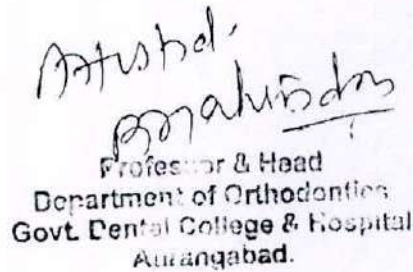 Professor & Head
Department of Orthodontics
Govt. Dental College & Hospital
Aurangabad.